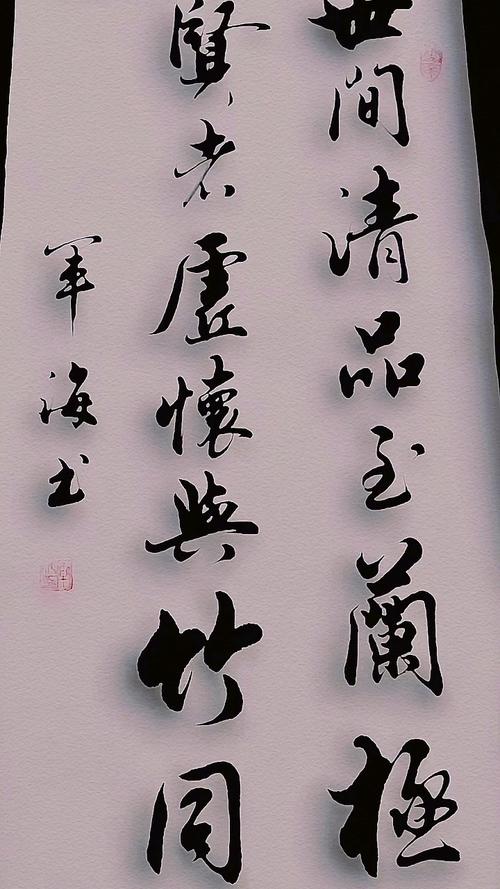 世間清品至蘭極
賢者虛懷與竹同
軍海书